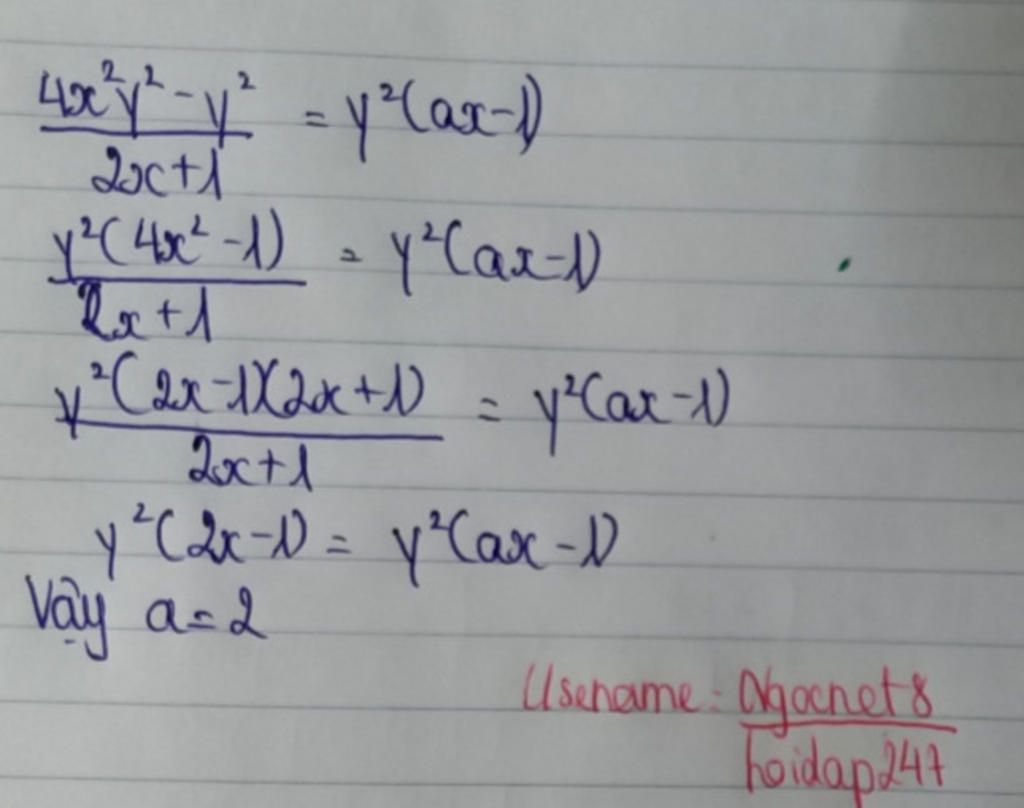 4x²y² - y² / 2x+1 = y²(ax-1)
y²(4x² -1) / 2x+1 = y²(ax-1)
y²(2x-1)(2x+1) / 2x+1 = y²(ax-1)
y²(2x-1) = y²(ax-1)
Vậy a=2
Usename: Ngocnet8
hoidap247